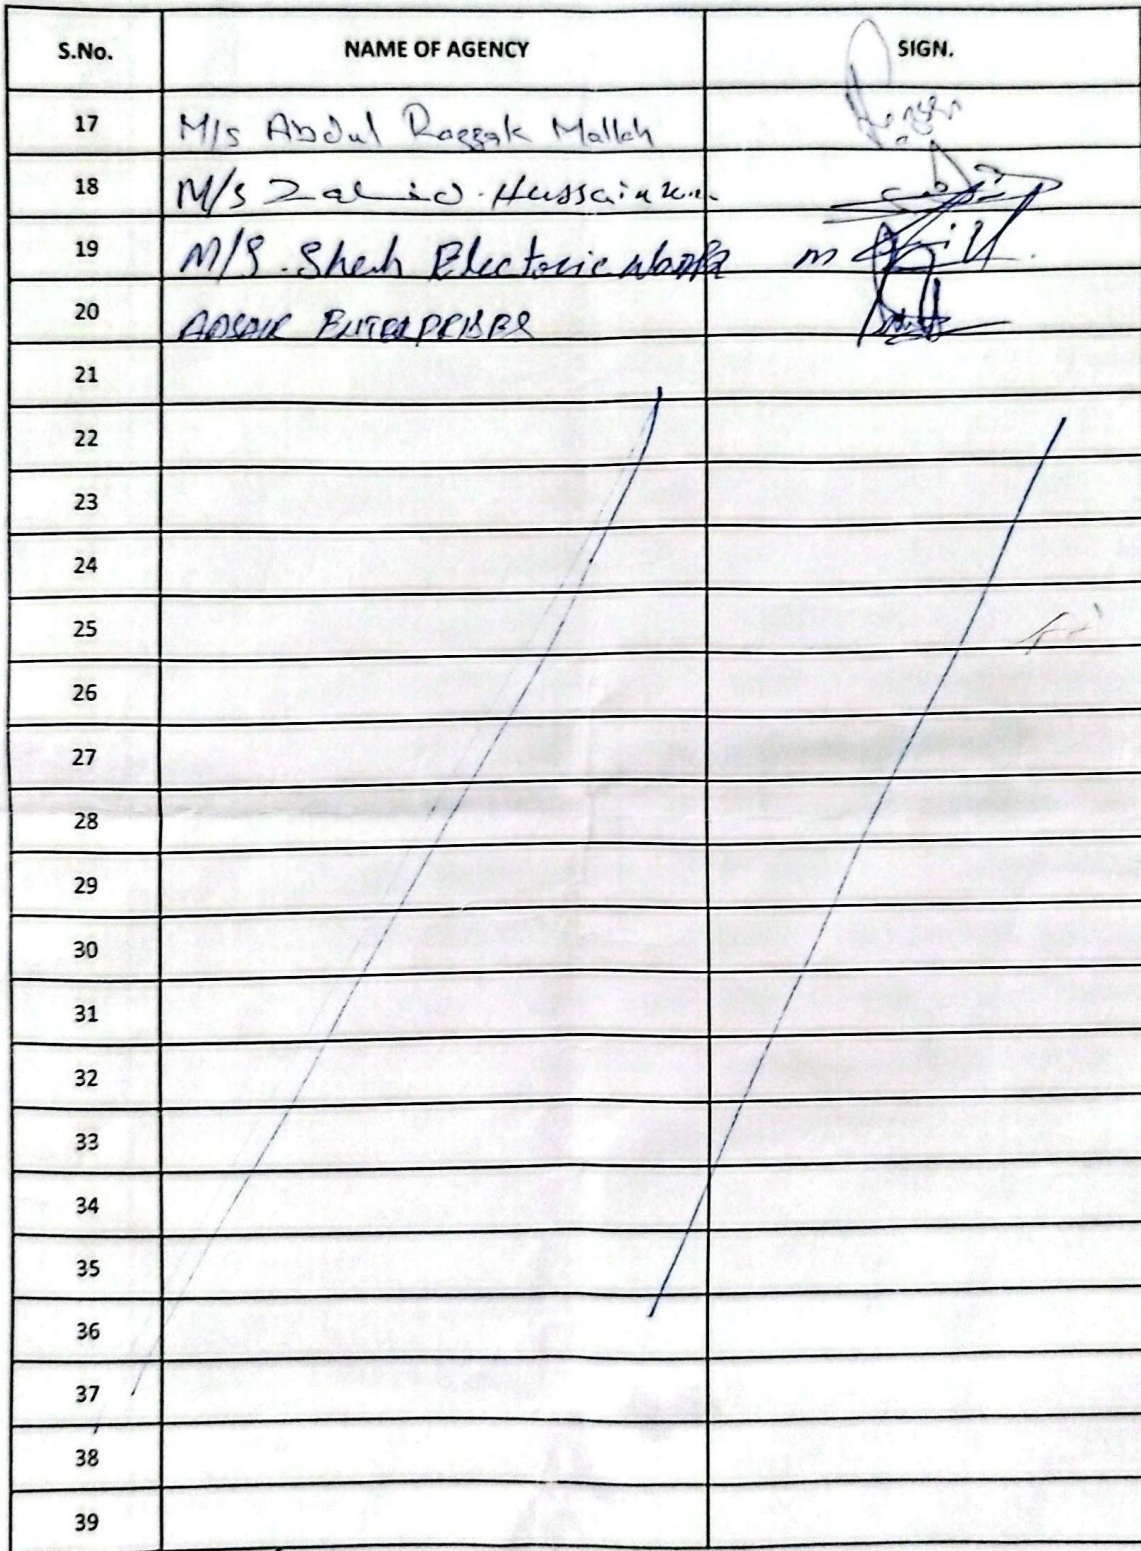 S.No. NAME OF AGENCY SIGN.
17 M/s Abdul Razzak Mallah
18 M/s Zahid Hussain
19 M/S. Shah Electric
20 ENTERPRISES
21
22
23
24
25
26
27
28
29
30
31
32
33
34
35
36
37
38
39